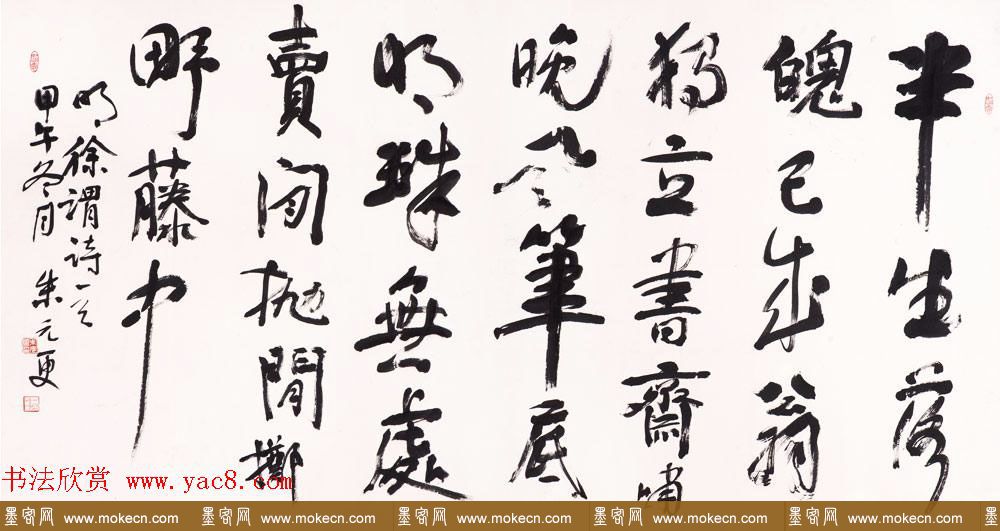 半生落
魄已成翁
独立書齋嘯
晚风筆底
明珠無處
賣闲抛閒擲
野藤中
明徐謂詩一首
甲午冬月 朱元更
书法欣赏 www.yac8.com
墨客网 www.mokecn.com 墨客网 www.mokecn.com 墨客网 www.mokecn.com 墨客网 www.mokecn.com